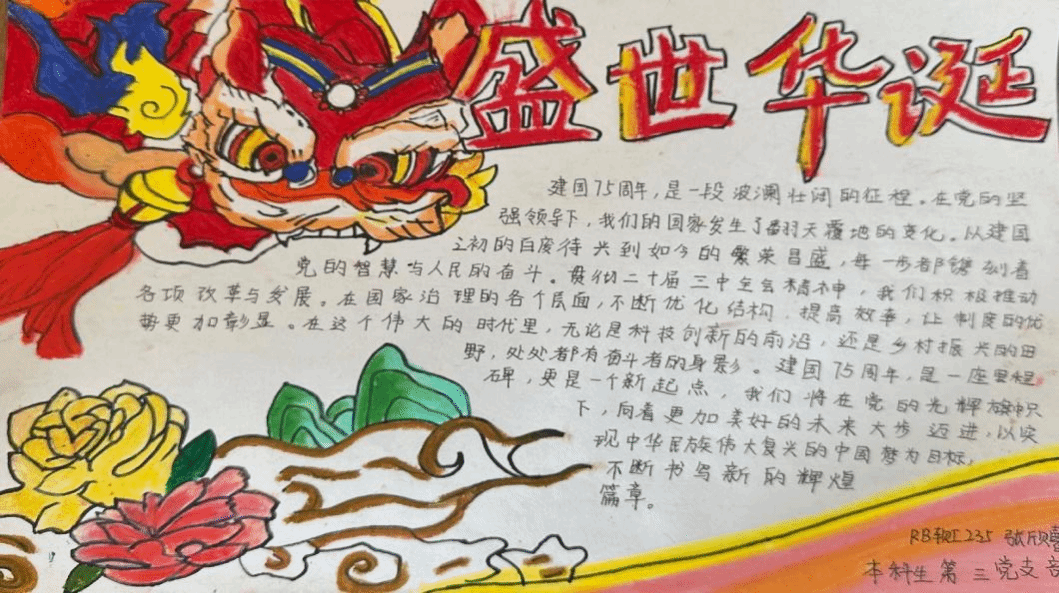 盛世华诞
建国75周年,是一段波澜壮阔的征程。在党的坚
强领导下,我们的国家发生了翻天覆地的变化。从建国
之初的百废待兴到如今的繁荣昌盛,每一步都镌刻着
党的智慧与人民的奋斗。贯彻二十届三中全会精神,我们积极推动
各项改革与发展。在国家治理的各个层面,不断优化结构,提高效率,让制度的优
势更加彰显。在这个伟大的时代里,无论是科技创新的前沿,还是乡村振兴的田
野,处处都有奋斗者的身影。建国75周年,是一座里程
碑,更是一个新起点,我们将在党的光辉旗帜
下,向着更加美好的未来大步迈进,以实
现中华民族伟大复兴的中国梦为目标,
不断书写新的辉煌
篇章。
235 张欣
本科生第三党支部